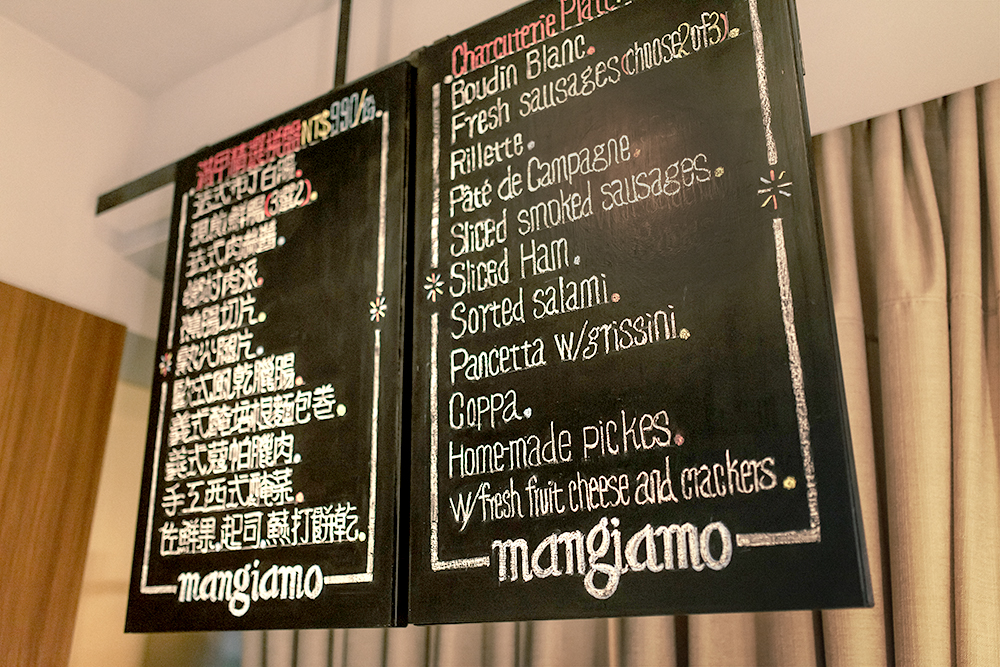 NT$990/份
法式布丁白腸.
現做鮮腸(3選2).
法式肉絲醬.
鄉村肉派.
燻腸切片.
歐火腿片.
歐式風乾臘腸.
義式醃培根麵包卷.
義式寇帕臘肉.
手工西式醃菜.
佐鮮果.起司.蘇打餅乾.
mangiamo
Charcuterie
Boudin Blanc.
Fresh sausages (choose 2 of 3).
Rillette.
Pâté de Campagne.
Sliced smoked sausages.
Sliced Ham.
Sorted salami.
Pancetta w/grissini.
Coppa.
Home-made pickes.
w/fresh fruit cheese and crackers.
mangiamo